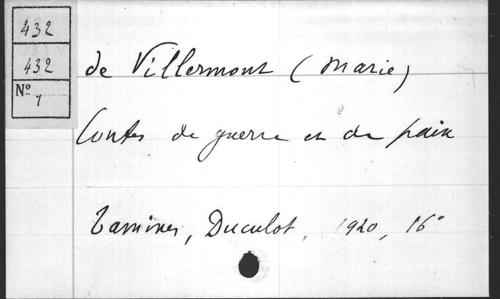 432
432
Nº 1
de Villermont (Marie)
Contes de guerre et de paix
Tamines, Duculot, 1920, 16°